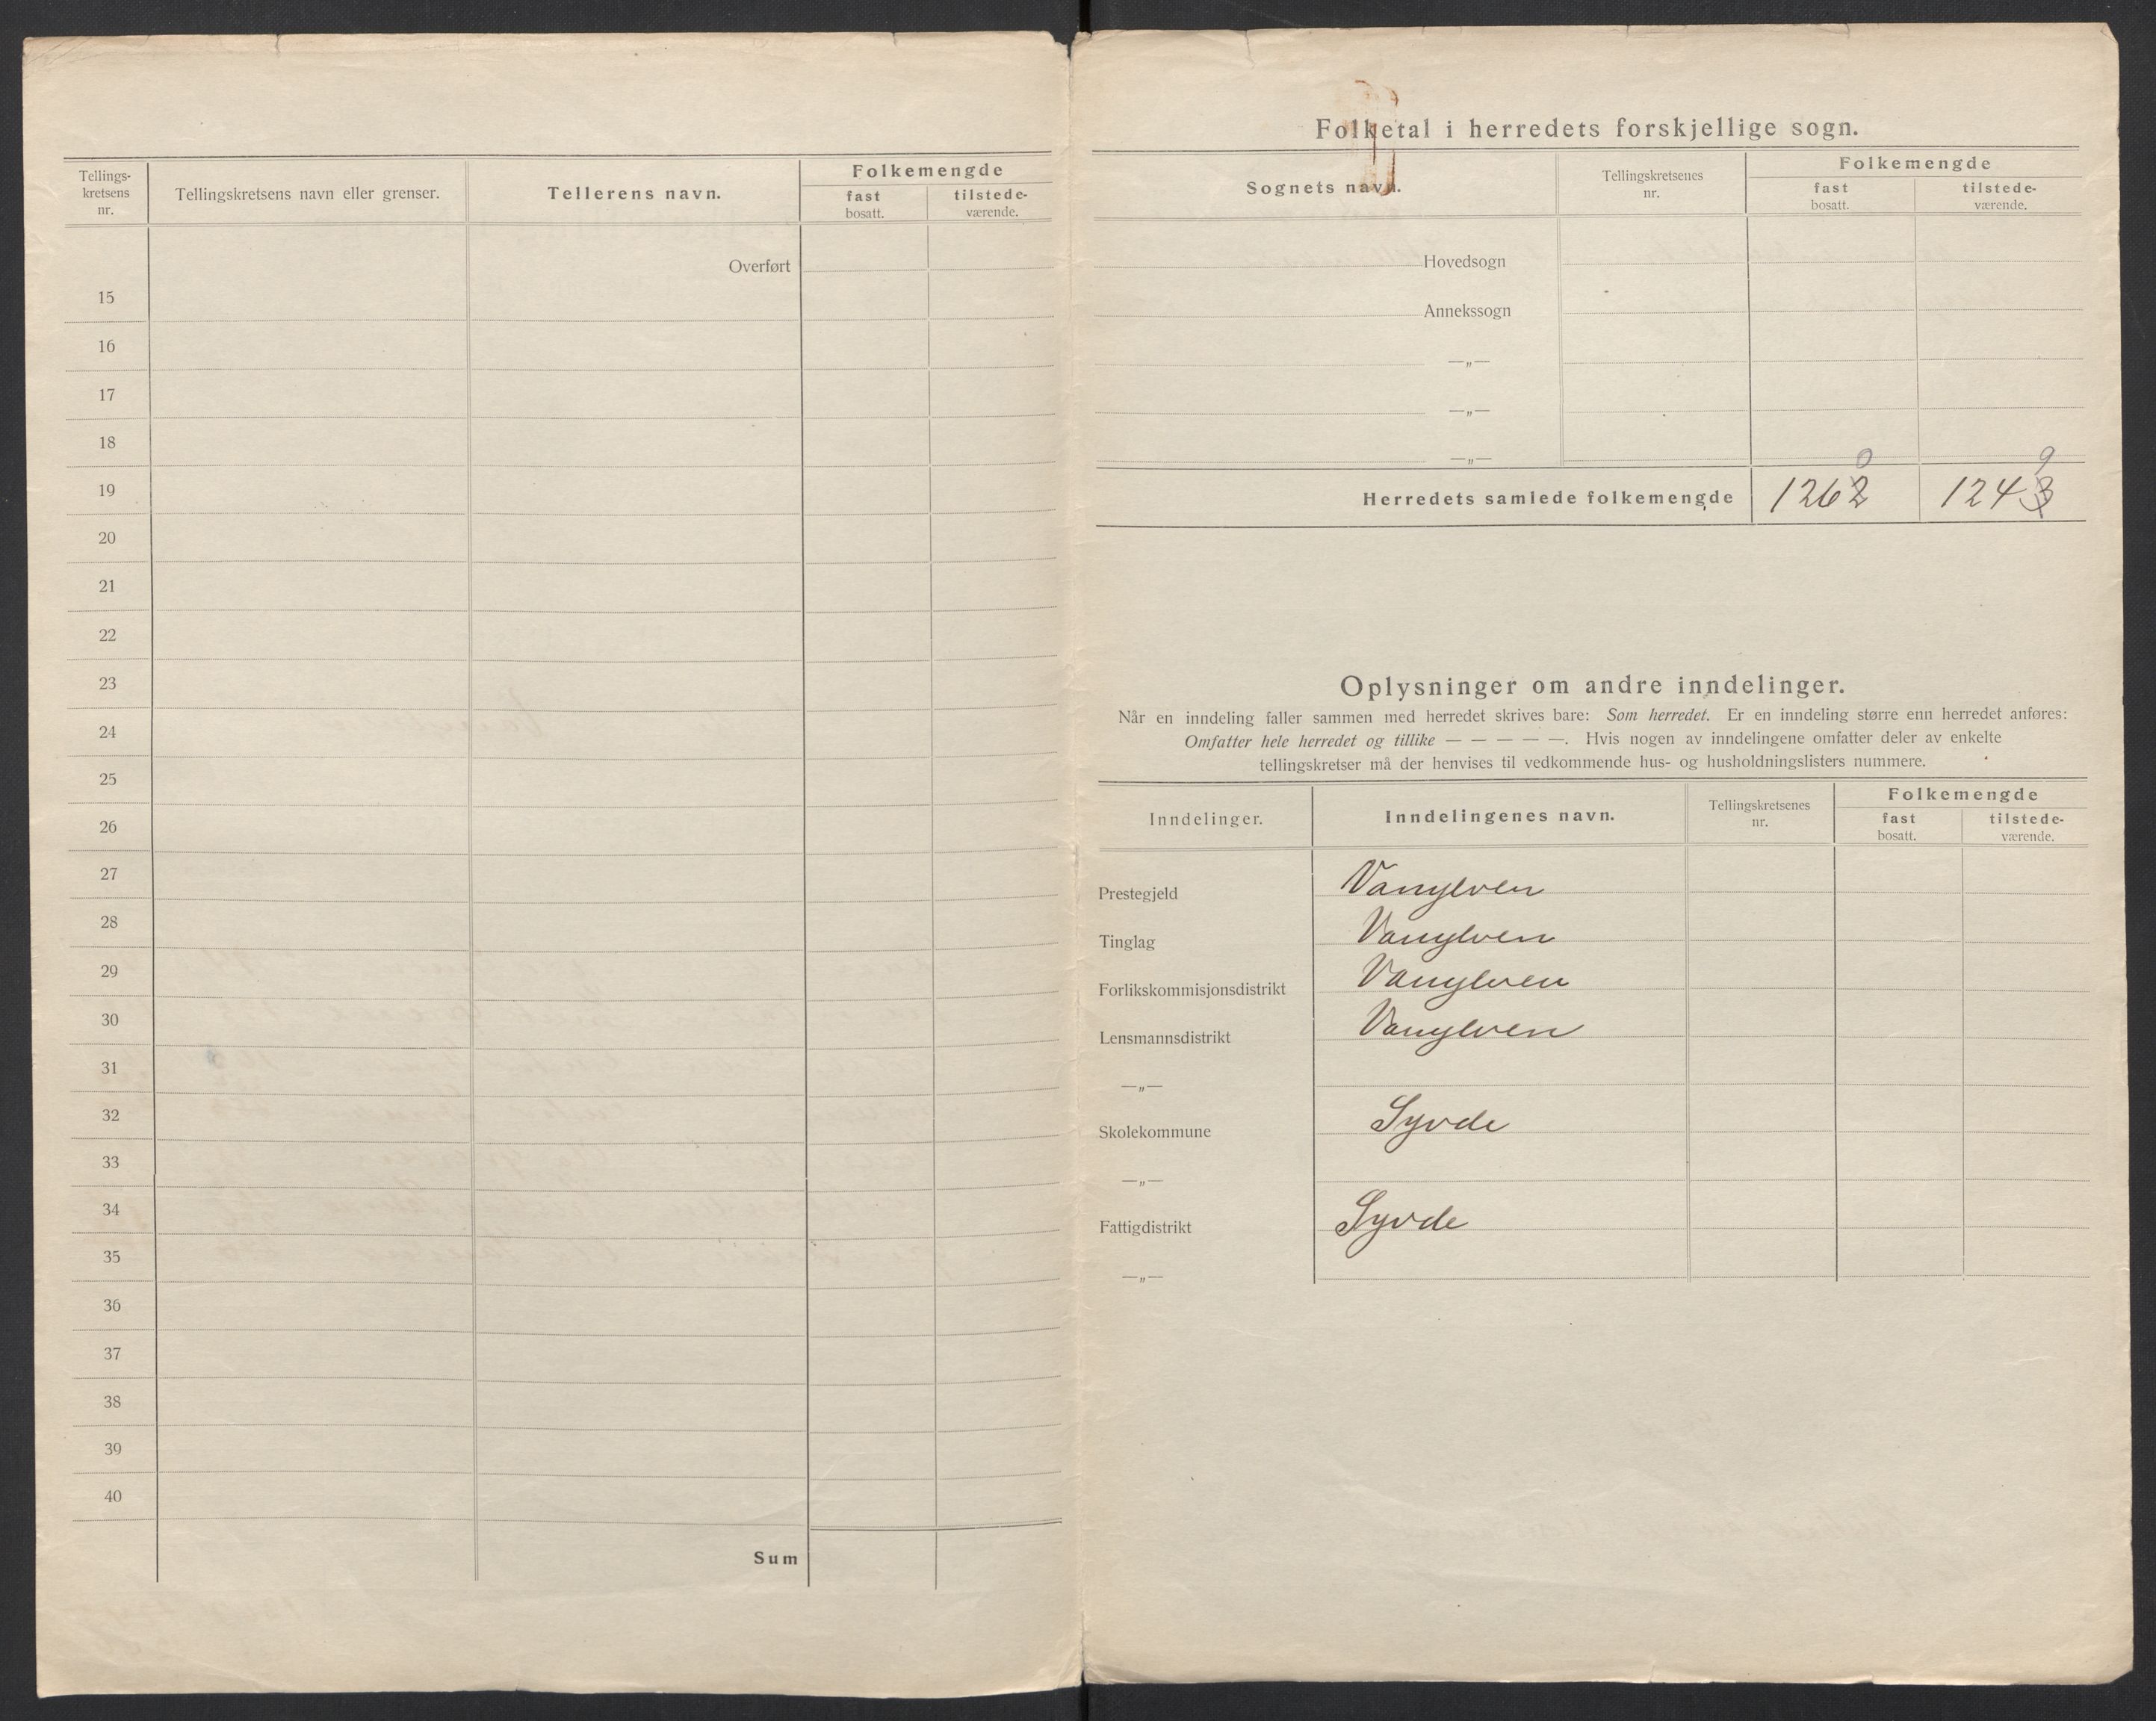 Tellings-
kretsens
nr.
Tellingskretsens navn eller grenser.
Tellerens navn.
Folkemengde
fast
bosatt.
tilstede-
værende.
Overført
15
16
17
18
19
20
21
22
23
24
25
26
27
28
29
30
31
32
33
34
35
36
37
38
39
40
Sum
Folketal i herredets forskjellige sogn.
Sognets navn.
Tellingskretsenes
nr.
Folkemengde
fast
bosatt.
tilstede-
værende.
Hovedsogn
Annekssogn
—„—
—„—
—„—
0 9
Herredets samlede folkemengde 1262 1243
Oplysninger om andre inndelinger.
Når en inndeling faller sammen med herredet skrives bare: Som herredet. Er en inndeling større enn herredet anføres:
Omfatter hele herredet og tillike — — — — —. Hvis nogen av inndelingene omfatter deler av enkelte
tellingskretser må der henvises til vedkommende hus- og husholdningslisters nummere.
Inndelinger.
Inndelingenes navn.
Tellingskretsenes
nr.
Folkemengde
fast
bosatt.
tilstede-
værende.
Prestegjeld Vanylven
Tinglag Vanylven
Forlikskommisjonsdistrikt Vanylven
Lensmannsdistrikt Vanylven
—„—
Skolekommune Syvde
—„—
Fattigdistrikt Syvde
—„—